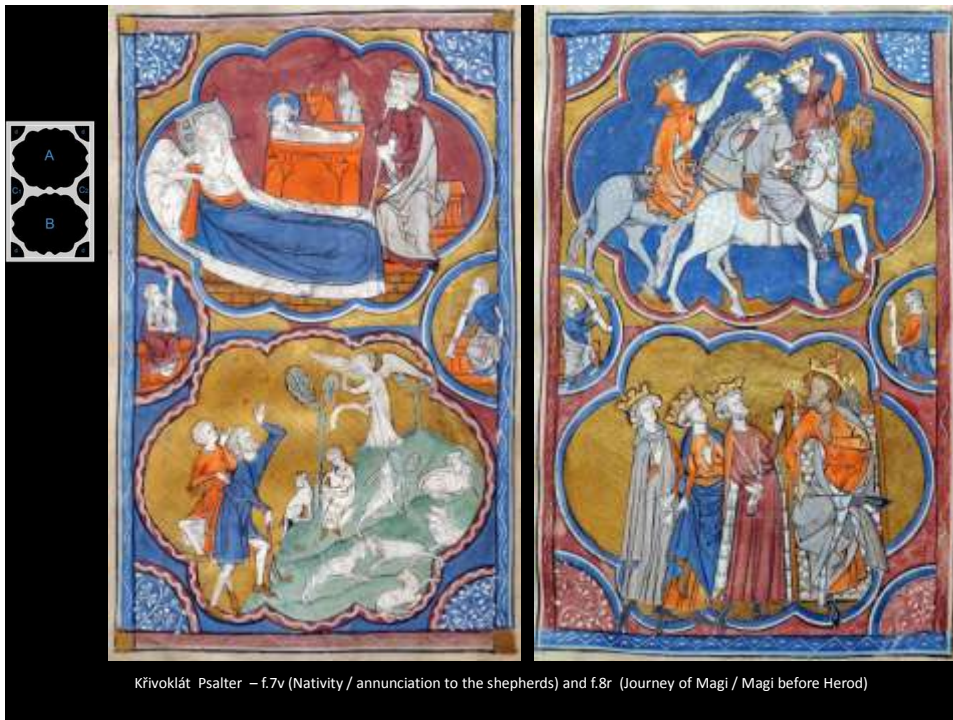 A
C1 C2
B
Křivoklát Psalter – f.7v (Nativity / annunciation to the shepherds) and f.8r (Journey of Magi / Magi before Herod)